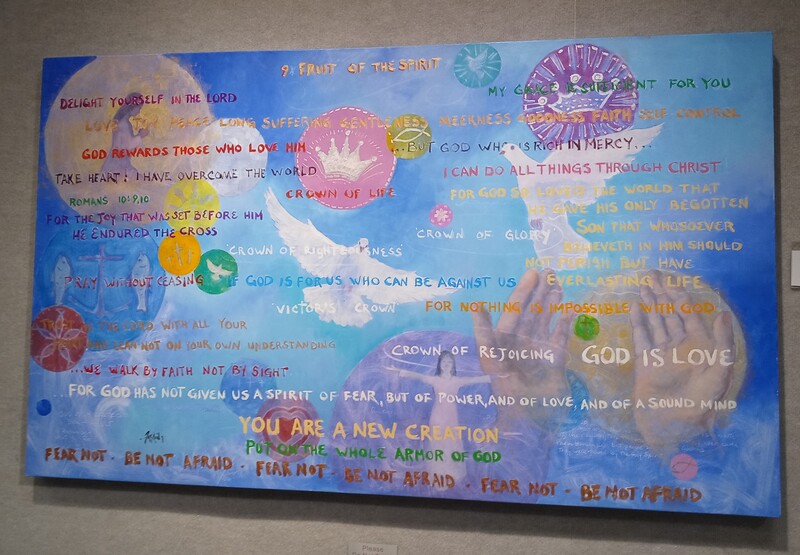 9 FRUIT OF THE SPIRIT
MY GRACE IS SUFFICIENT FOR YOU
DELIGHT YOURSELF IN THE LORD
LOVE JOY PEACE LONG SUFFERING GENTLENESS MEEKNESS GOODNESS FAITH SELF CONTROL
GOD REWARDS THOSE WHO LOVE HIM
...BUT GOD WHO IS RICH IN MERCY...
TAKE HEART! I HAVE OVERCOME THE WORLD
I CAN DO ALL THINGS THROUGH CHRIST
CROWN OF LIFE
ROMANS 10:9,10
FOR GOD SO LOVED THE WORLD THAT
HE GAVE HIS ONLY BEGOTTEN
SON THAT WHOSOEVER
BELIEVETH IN HIM SHOULD
NOT PERISH BUT HAVE
EVERLASTING LIFE
FOR THE JOY THAT WAS SET BEFORE HIM
HE ENDURED THE CROSS
'CROWN OF RIGHTEOUSNESS'
'CROWN OF GLORY'
PRAY WITHOUT CEASING
IF GOD IS FOR US WHO CAN BE AGAINST US
'VICTORS CROWN'
FOR NOTHING IS IMPOSSIBLE WITH GOD
TRUST IN THE LORD WITH ALL YOUR
LEAN NOT ON YOUR OWN UNDERSTANDING
CROWN OF REJOICING
GOD IS LOVE
...WE WALK BY FAITH NOT BY SIGHT
...FOR GOD HAS NOT GIVEN US A SPIRIT OF FEAR, BUT OF POWER, AND OF LOVE, AND OF A SOUND MIND
YOU ARE A NEW CREATION
PUT ON THE WHOLE ARMOR OF GOD
FEAR NOT - BE NOT AFRAID - FEAR NOT - BE NOT AFRAID - FEAR NOT - BE NOT AFRAID
Please